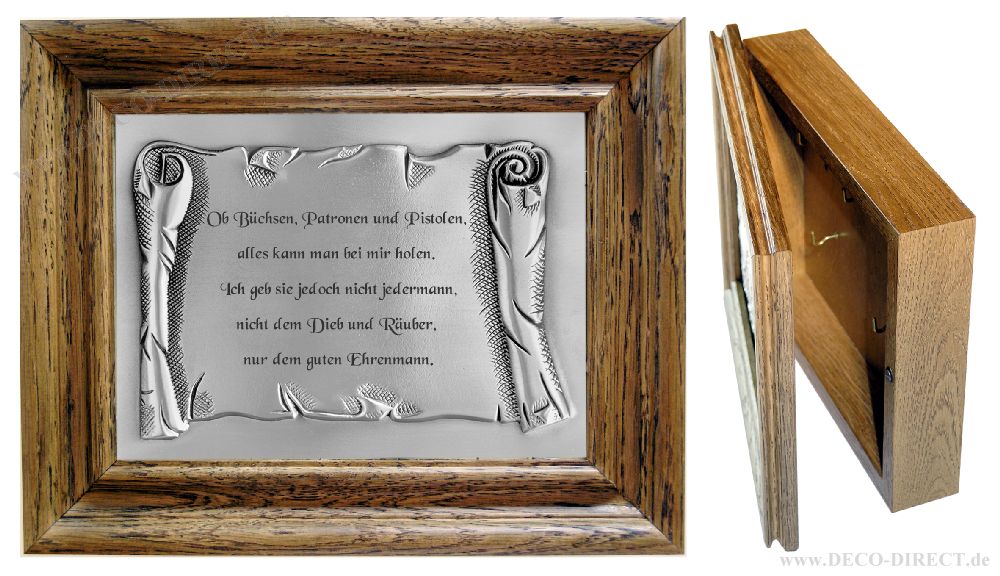 Ob Büchsen, Patronen und Pistolen,
alles kann man bei mir holen.
Ich geb sie jedoch nicht jedermann,
nicht dem Dieb und Räuber,
nur dem guten Ehrenmann.
www.DECO-DIRECT.de